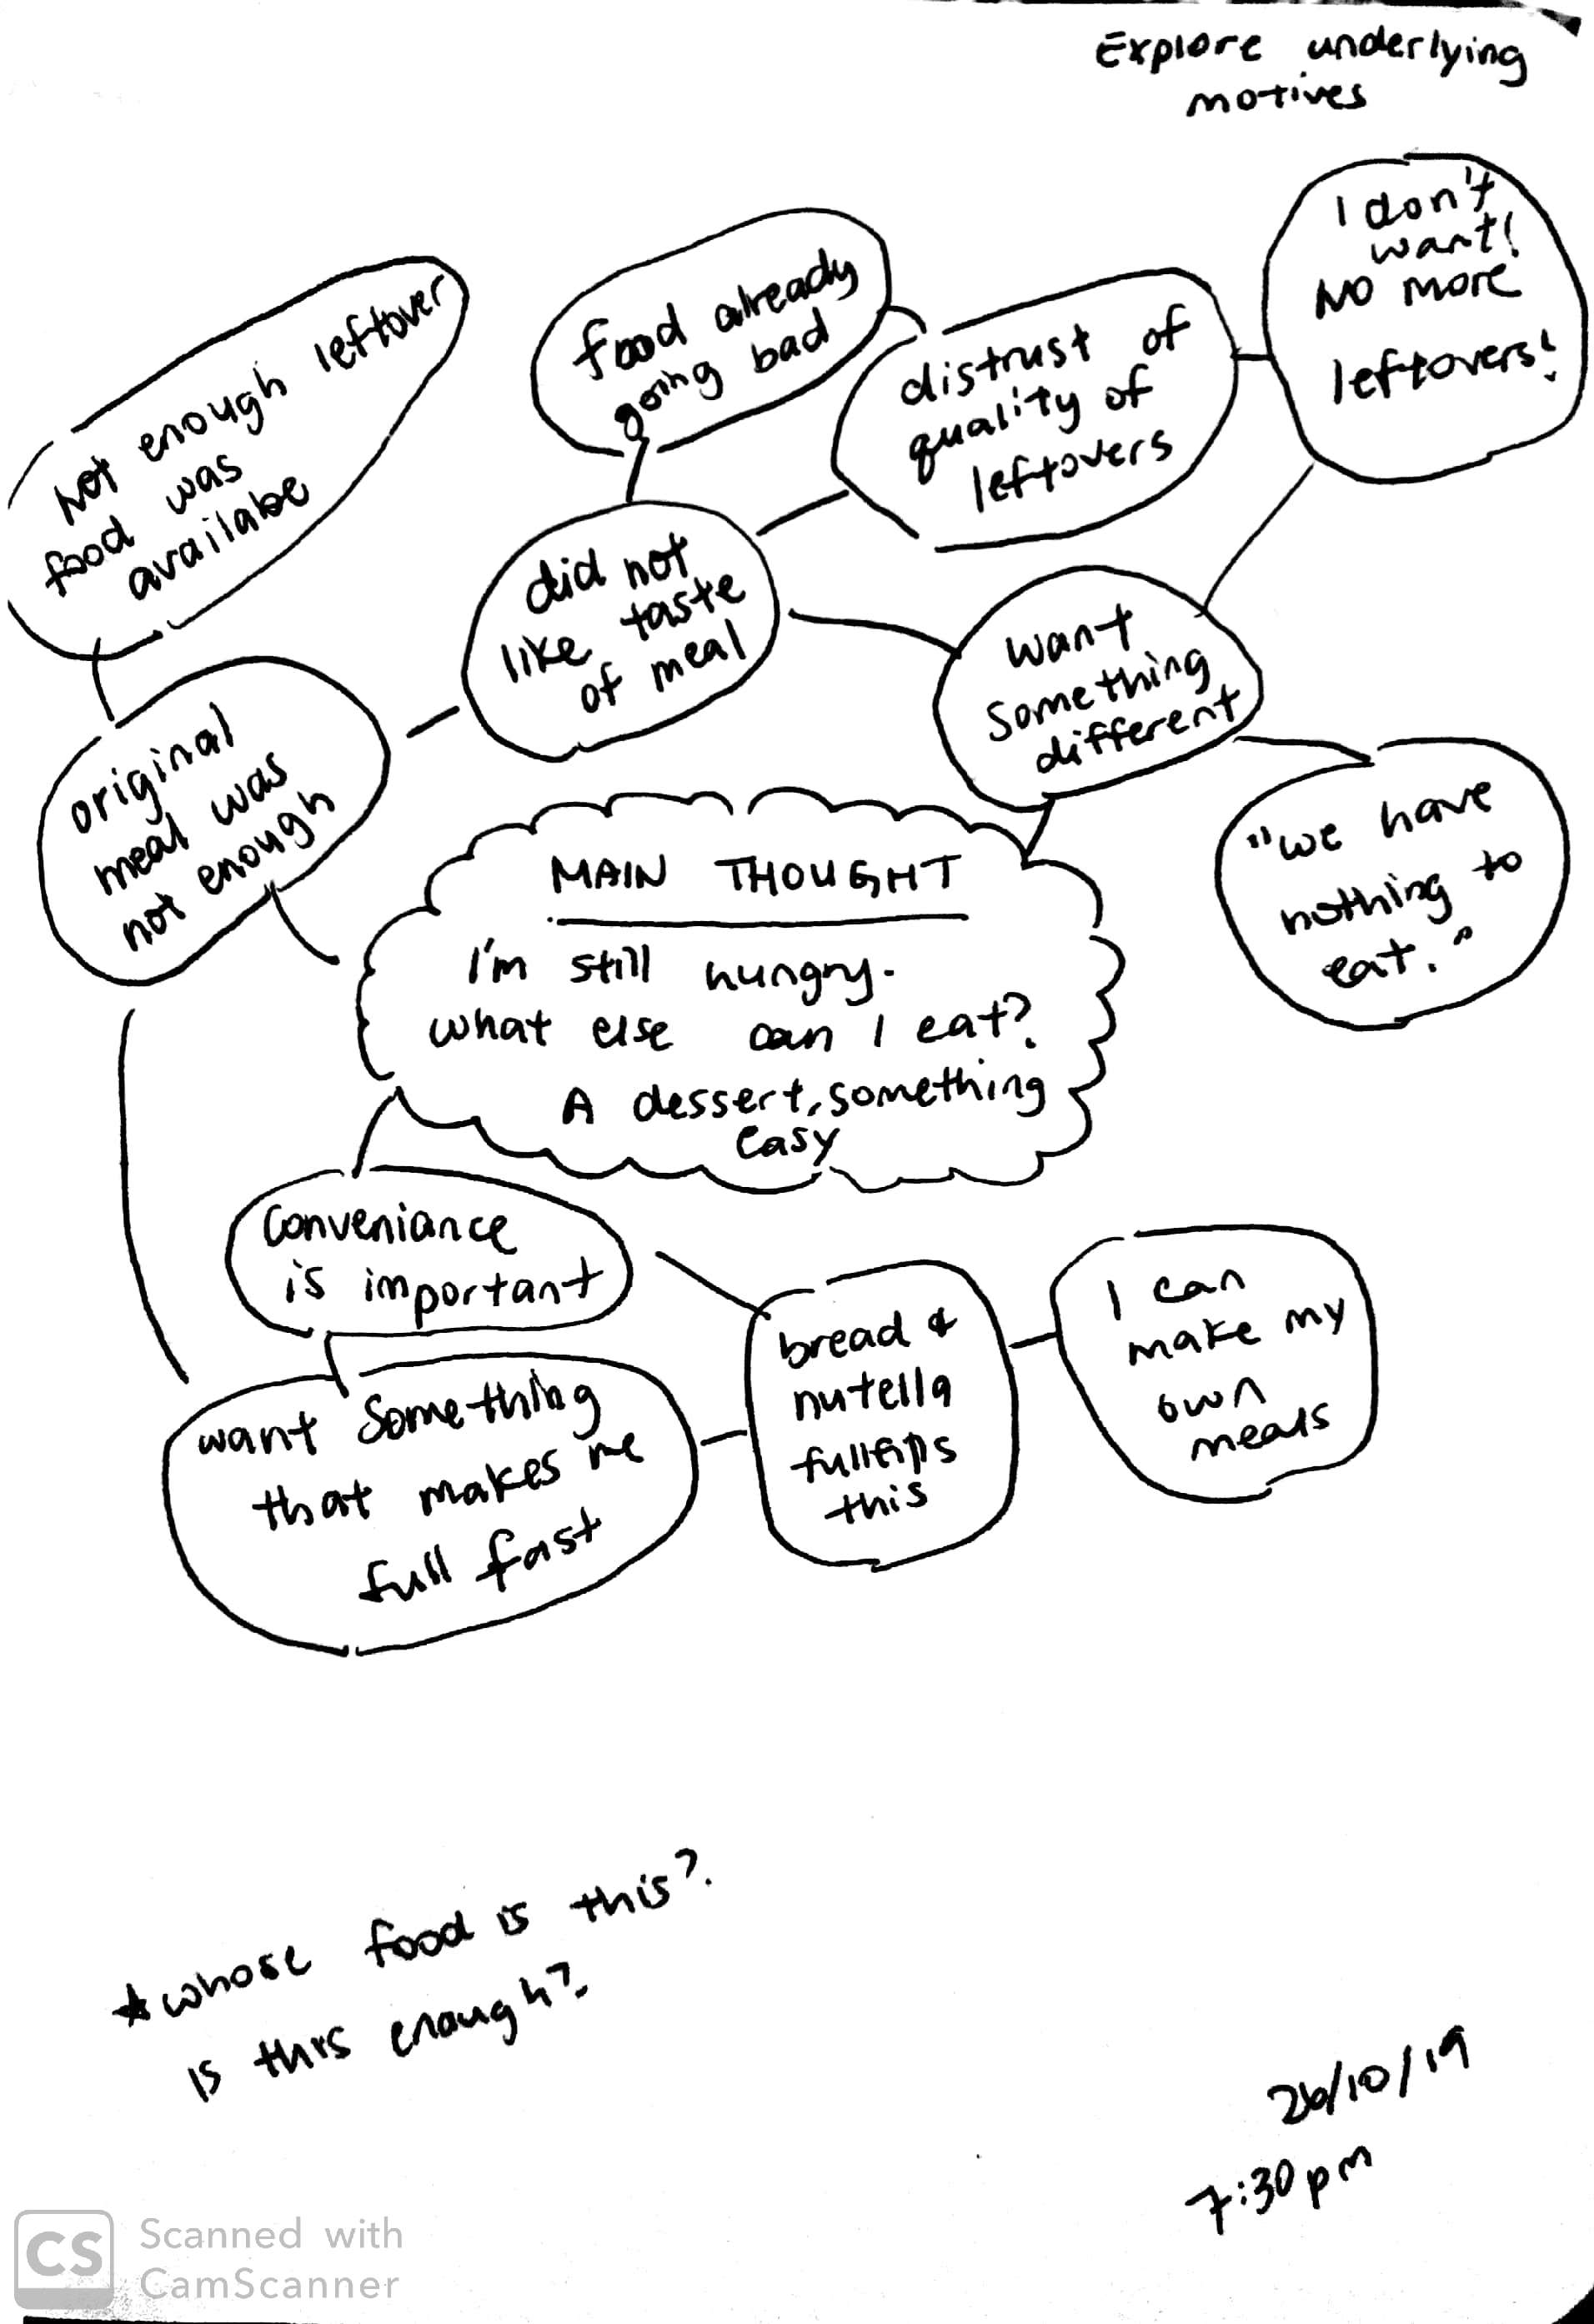 Explore underlying
motives
I don't
want!
NO more
leftovers!
food already
going bad
distrust of
quality of
leftovers
Not enough leftover
food was
availabe
did not
like taste
of meal
want
something
different
original
meal was
not enough
"we have
nothing to
eat."
MAIN THOUGHT
I'm still hungry.
what else can I eat?
A dessert, something
easy
Conveniance
is important
want something
that makes me
full fast
bread &
nutella
this
I can
make my
own
meals
★ whose food is this?
is this enough?
26/10/19
7:30pm
CS
Scanned with
CamScanner